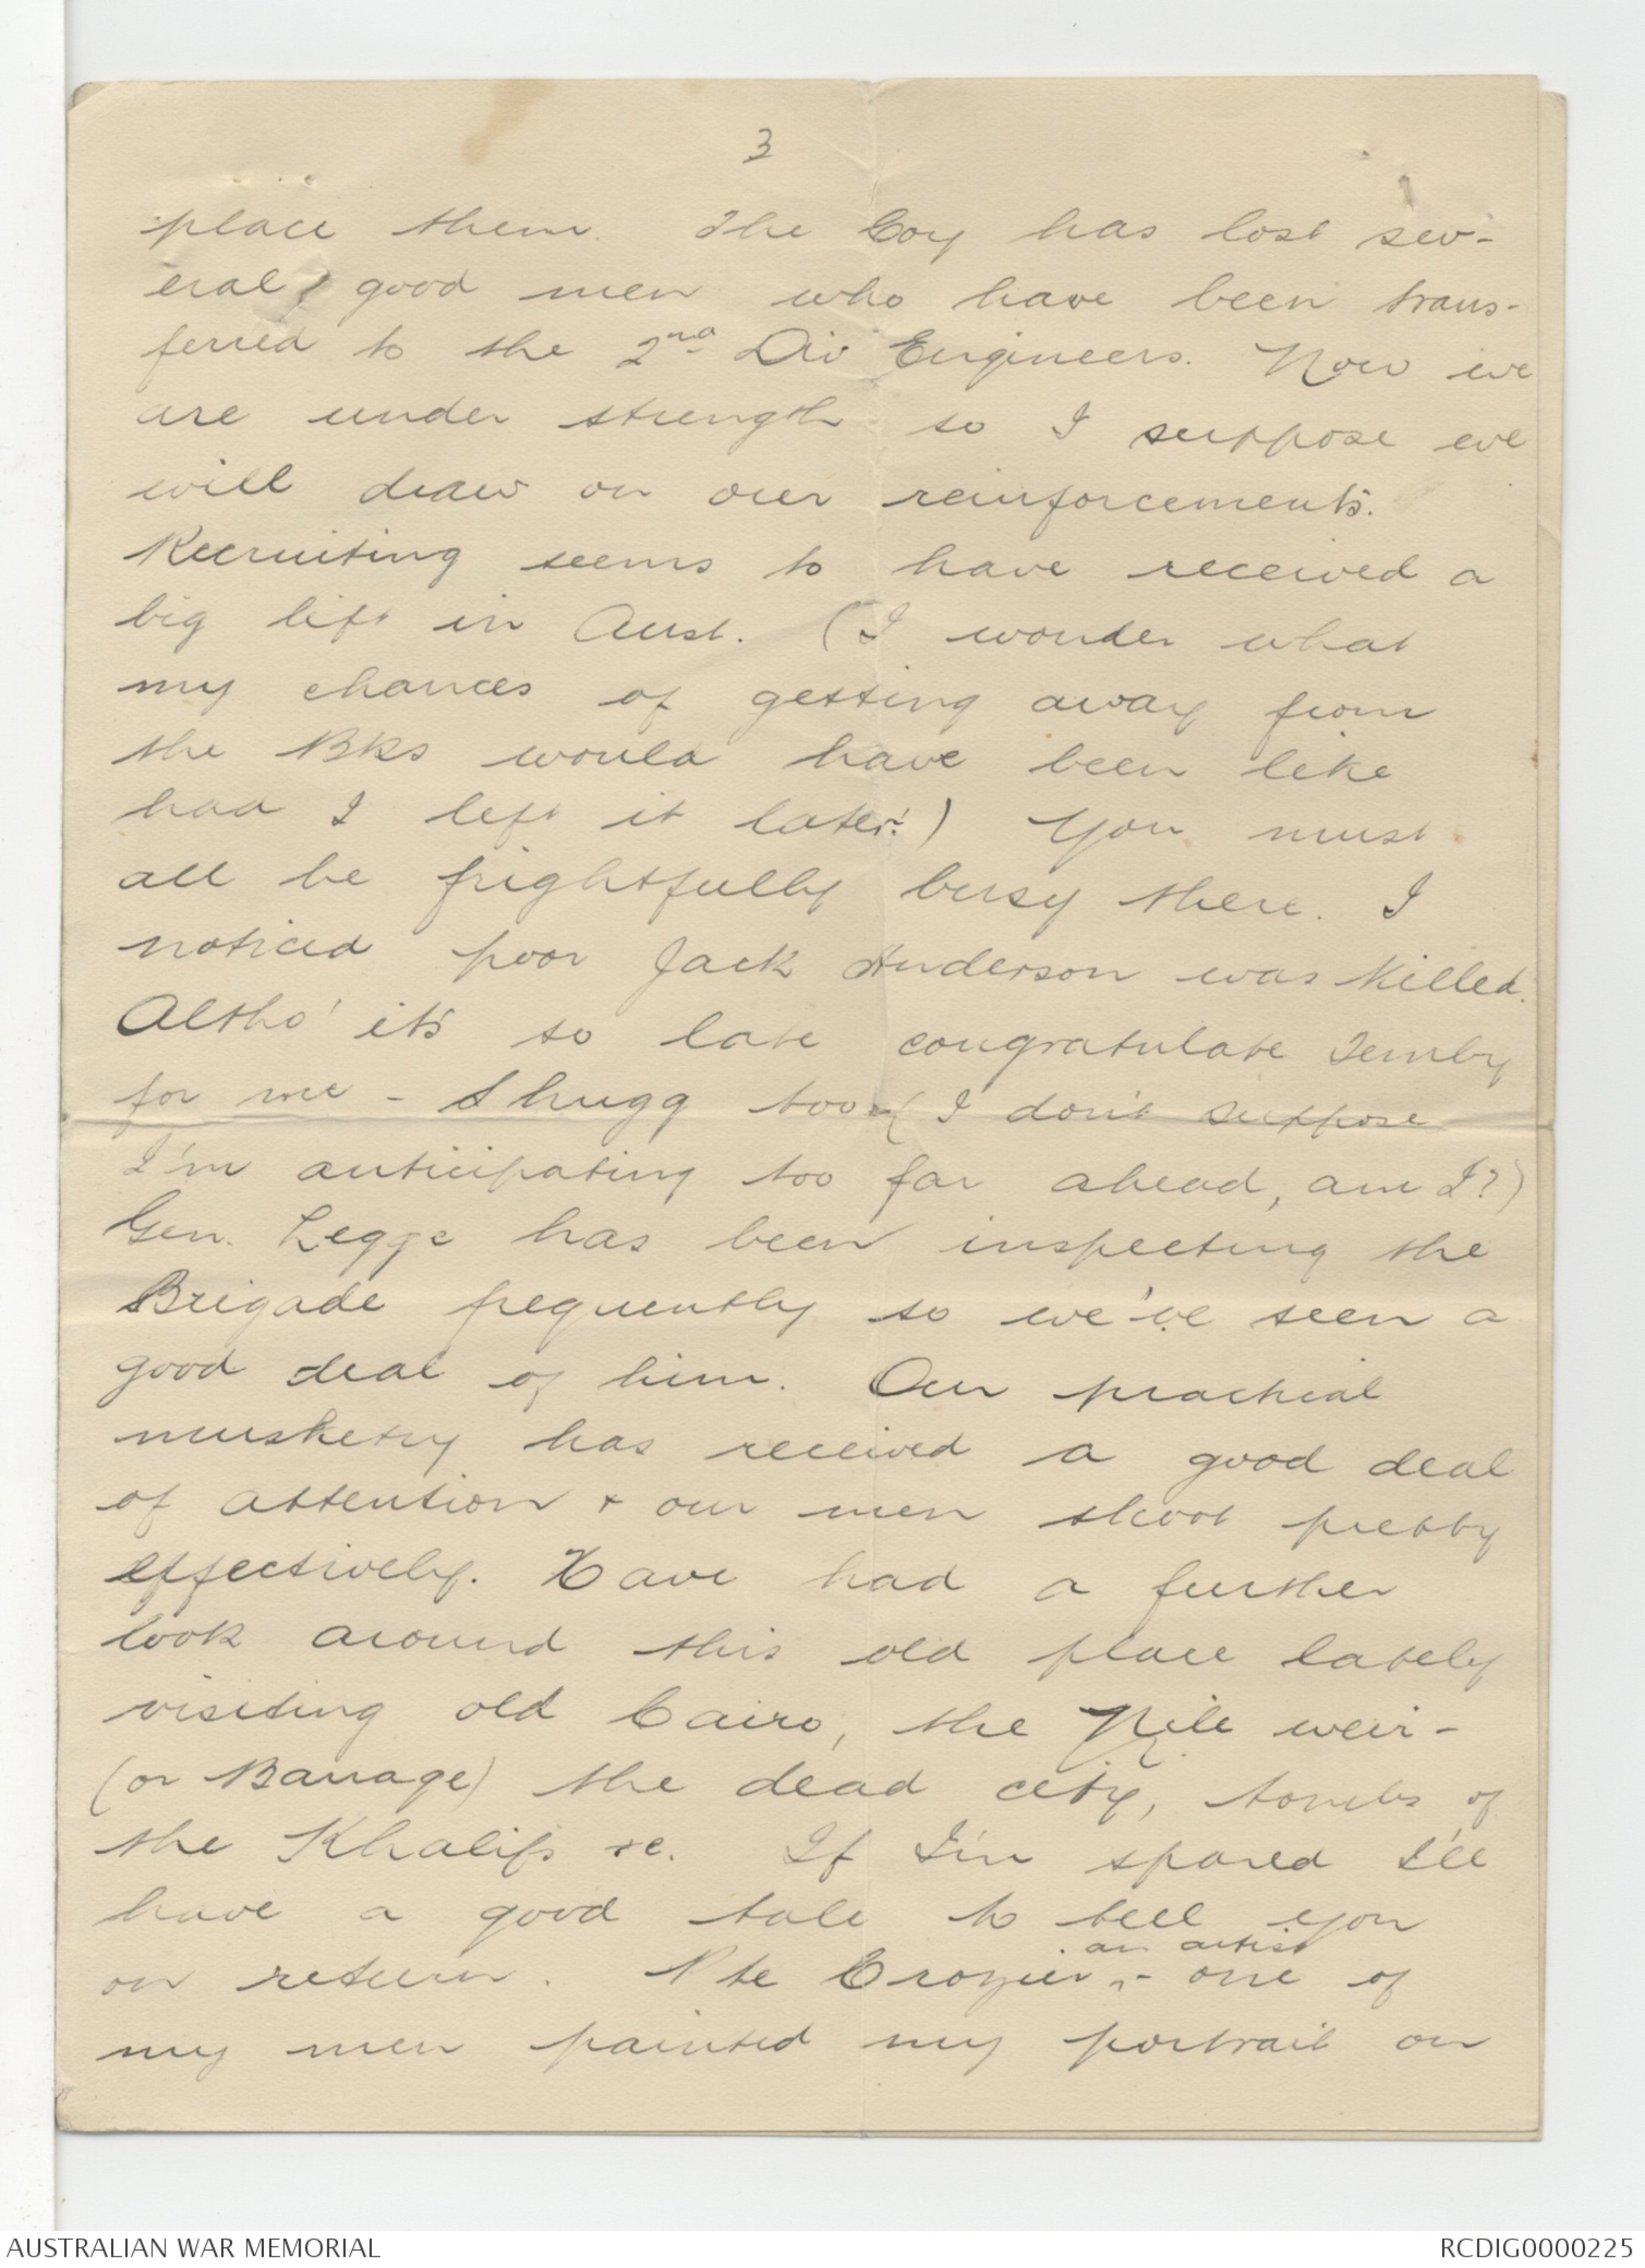 3
place them. The Coy has lost sev-
eral good men who have been trans-
ferred to the 2nd Div Engineers. Now we
are under strength so I suppose we
will draw on our reinforcements.
Recruiting seems to have received a
big lift in Aust. (I wonder what
my chances of getting away from
the Bks would have been like
had I left it later!) You must
all be frightfully busy there. I
noticed poor Jack Anderson was killed.
Altho' it's so late congratulate Temby
for me - Shugg too (I don't suppose
I'm anticipating too far ahead, am I?)
Gen. Legge has been inspecting the
Brigade frequently so we've seen a
good deal of him. Our practical
musketry has received a good deal
of attention & our men shoot pretty
effectively. Have had a further
look around this old place lately
visiting old Cairo, the Nile weir -
(or Barrage) the dead city, tombs of
the Khalifs &c. If I'm spared I'll
have a good tale to tell you
on return. Pte Crozier, an artist - one of
my men painted my portrait on
AUSTRALIAN WAR MEMORIAL
RCDIG0000225